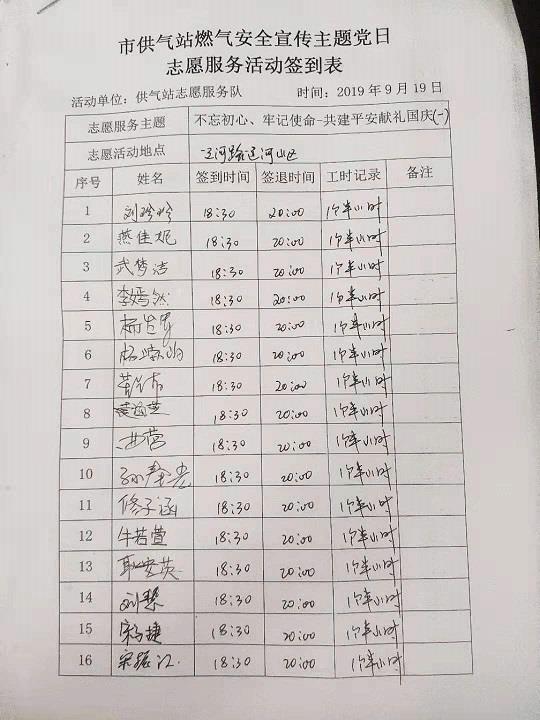 市供气站燃气安全宣传主题党日
志愿服务活动签到表
活动单位：供气站志愿服务队 时间：2019 年 9 月 19 日
志愿服务主题 不忘初心、牢记使命-共建平安献礼国庆(一)
志愿活动地点 运河路运河山区
序号 姓名 签到时间 签退时间 工时记录 备注
1 刘玲玲 18:30 20:00 1个半小时
2 燕佳妮 18:30 20:00 1个半小时
3 武梦洁 18:30 20:00 1个半小时
4 李嫣然 18:30 20:00 1个半小时
5 18:30 20:00 1个半小时
6 18:30 20:00 1个半小时
7 18:30 20:00 1个半小时
8 18:30 20:00 1个半小时
9 18:30 20:00 1个半小时
10 18:30 20:00 1个半小时
11 修子涵 18:30 20:00 1个半小时
12 牛若萱 18:30 20:00 1个半小时
13 耿安英 18:30 20:00 1个半小时
14 刘慧 18:30 20:00 1个半小时
15 18:30 20:00 1个半小时
16 宋振江 18:30 20:00 1个半小时